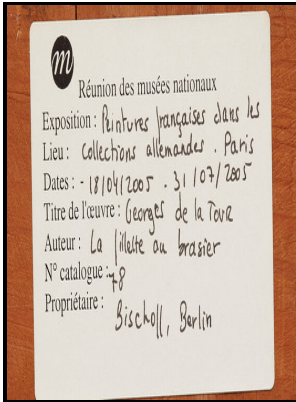 m
Réunion des musées nationaux
Exposition : Peintures françaises dans les
Lieu : Collections allemandes . Paris
Dates : - 18/04/2005 . 31/07/2005
Titre de l'œuvre : Georges de la Tour
Auteur : La fillette au brasier
N° catalogue : 78
Propriétaire :
Bischoll, Berlin